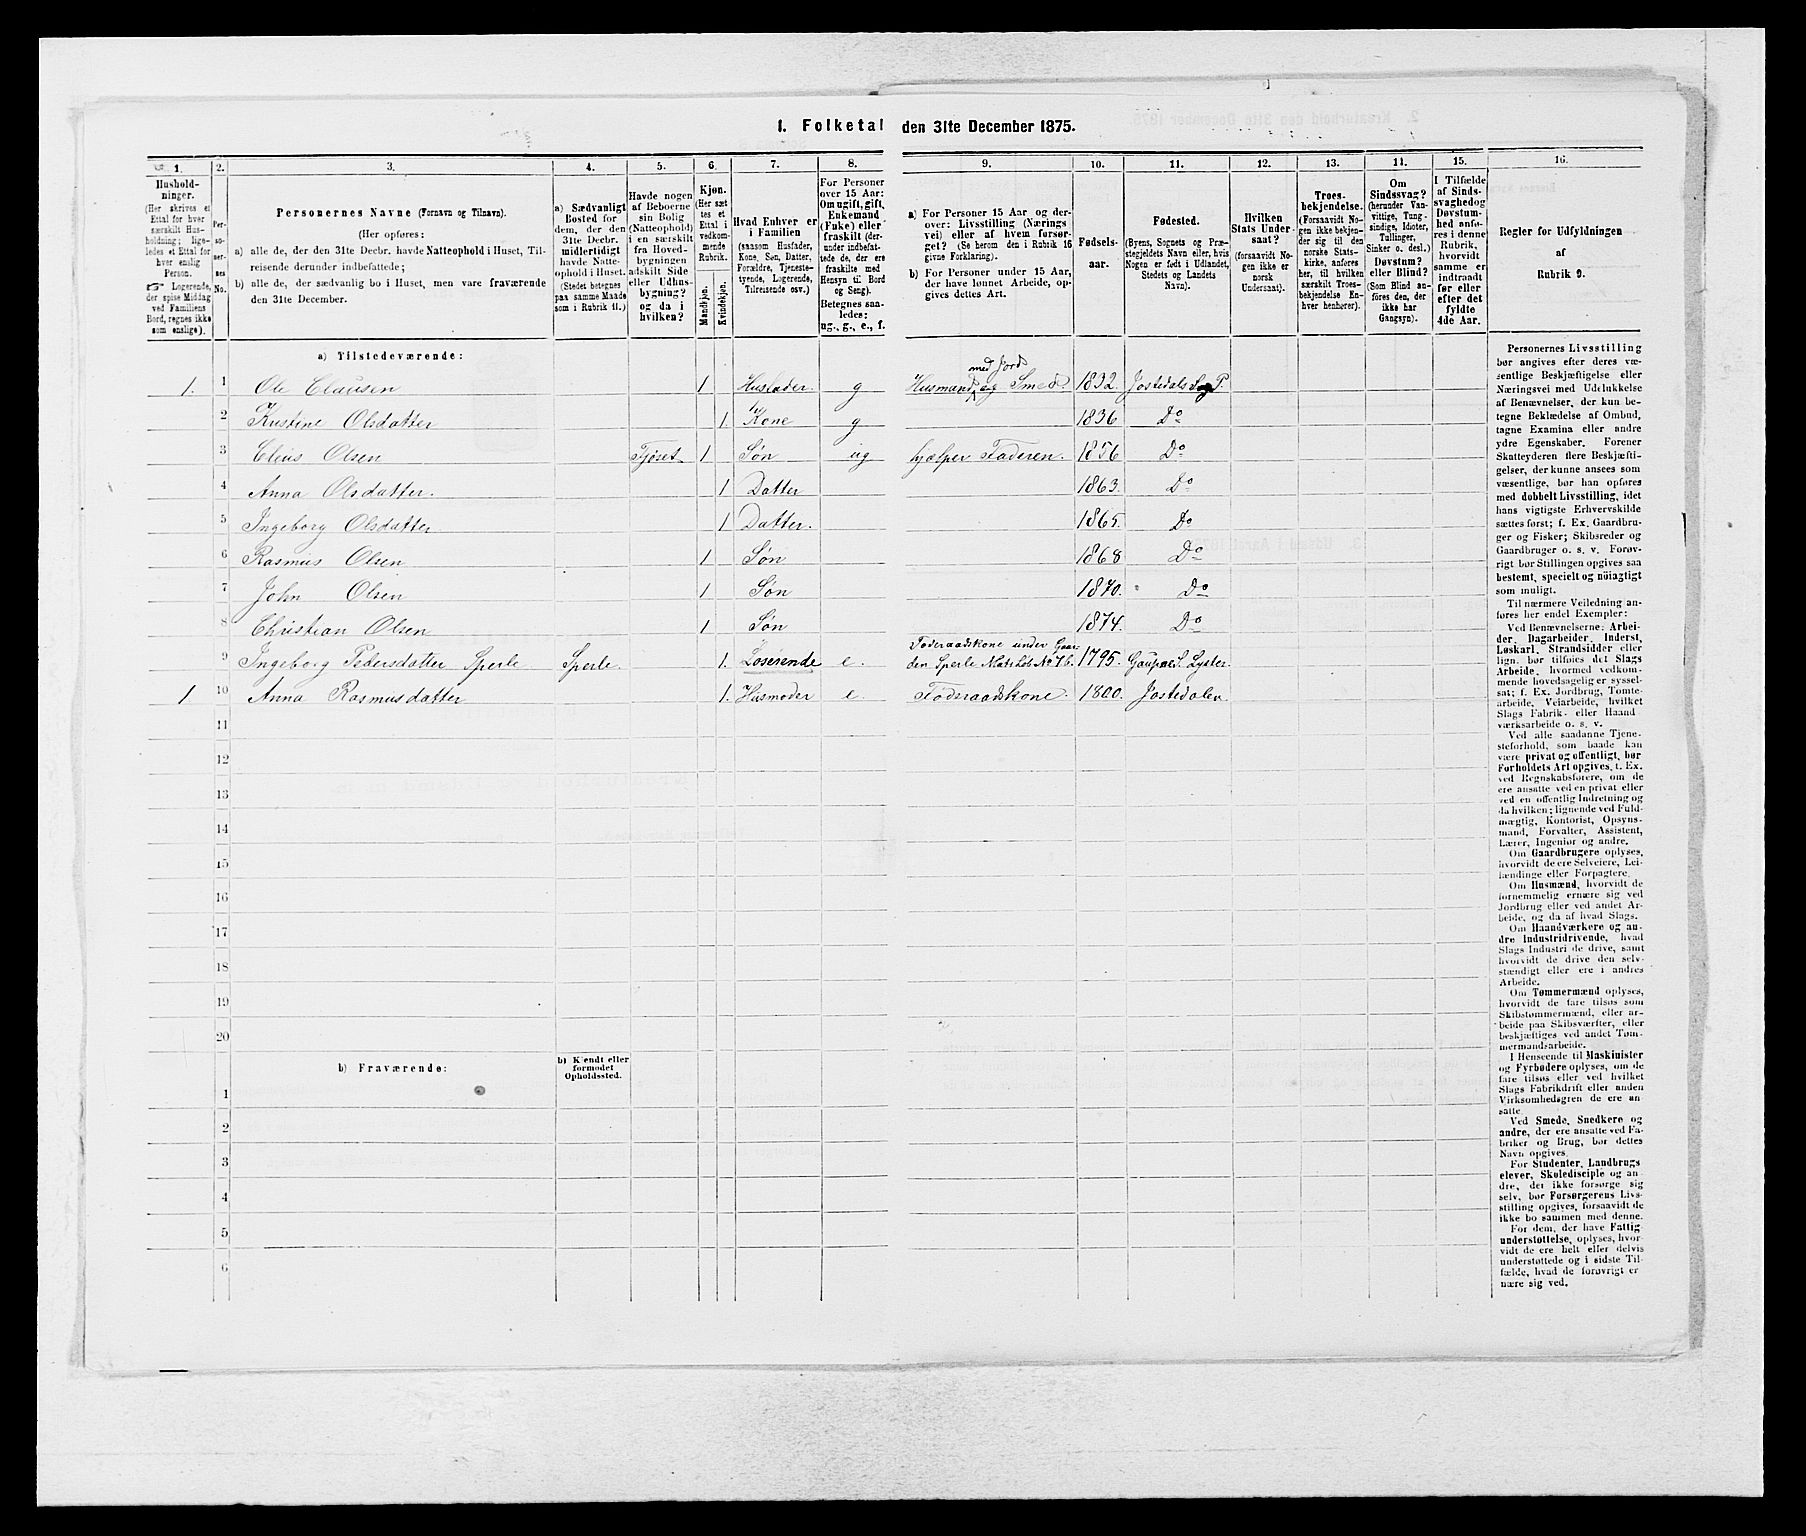 1. Folketal den 31te December 1875.
1. 2. 3. 4. 5. 6. 7. 8. 9. 10. 11. 12. 13. 14. 15. 16.
Hushold-
ninger.
(Her skrives et
Ettal for hver
særskilt Hus-
holdning; lige-
ledes et Ettal for
hver enslig
Person.
☞ Logerende,
der spise Middag
ved Familiens
Bord, regnes ikke
som enslige).
Per-
so-
ner-
nes
No.
Personernes Navne (Fornavn og Tilnavn).
(Her opføres:
a) alle de, der den 31te Decbr. havde Natteophold i Huset, Til-
reisende derunder indbefattede;
b) alle de, der sædvanlig bo i Huset, men vare fraværende
den 31te December.
a) Sædvanligt
Bosted for
dem, der den
31te Decbr.
midlertidigt
havde Natte-
ophold i Huset.
(Stedet betegnes
paa samme Maade
som i Rubrik 11.)
Havde nogen
af Beboerne
sin Bolig
(Natteophold)
i en særskilt
fra Hoved-
bygningen
adskilt Side
eller Udhus-
bygning?
og da i
hvilken?
Kjøn.
(Her sæt-
tes et
Ettal i
vedkom-
mende
Rubrik.
Mandkjøn.
Kvindekjøn.
Hvad Enhver er
i Familien
(saasom Husfader,
Kone, Søn, Datter,
Forældre, Tjeneste-
tyende, Logerende,
Tilreisende osv.)
For Personer
over 15 Aar:
Om ugift, gift,
Enkemand
(Enke) eller
fraskilt (der-
under indbefat-
tede de, der ere
fraskilte med
Hensyn til Bord
og Seng).
Betegnes saa-
ledes:
ug., g., e., f.
a) For Personer 15 Aar og der-
over: Livsstilling (Nærings-
vei) eller af hvem forsør-
get? (Se herom den i Rubrik 16
givne Forklaring).
b) For Personer under 15 Aar,
der have lønnet Arbeide, op-
gives dettes Art.
Fødsels-
aar.
Fødested.
(Byens, Sognets og Præ-
stegjeldets Navn eller, hvis
Nogen er født i Udlandet,
Stedets og Landets
Navn).
Hvilken
Stats Under-
saat?
(forsaavidt No-
gen ikke er
norsk
Undersaat).
Troes-
bekjendelse.
(Forsaavidt No-
gen ikke bekjen-
der sig til den
norske Stats-
kirke, anføres
her, til hvilken
særskilt Troes-
bekjendelse En-
hver henhører).
Om
Sindssvag?
(herunder Van-
vittige, Tung-
sindige, Idioter,
Tullinger,
Sinker o. desl.)
Døvstum?
eller Blind?
(Som Blind an-
føres den, der
ikke har
Gangsyn).
I Tilfælde
af Sinds-
svaghed og
Døvstum-
hed anfø-
res i denne
Rubrik,
hvorvidt
samme er
indtraadt
før eller
efter det
fyldte
4de Aar.
Regler for Udfyldningen
af
Rubrik 9.
a) Tilstedeværende:
1. 1 Ole Clausen 1 Husfader. g Husmand med Jord og Smed. 1832. Jostedals Sog P.
2 Kristine Olsdatter 1. Kone g 1836 Do
3 Eleus Olsen Fjøset 1 Søn ug hjælper Faderen. 1856 Do
4 Anna Olsdatter. 1 Datter 1863. Do
5 Ingeborg Olsdatter 1 Datter. 1865. Do
6 Rasmus Olsen 1 Søn 1868 Do
7 John Olsen 1 Søn 1870. Do
8 Christian Olsen 1 Søn 1874. Do
9 Ingeborg Pedersdatter Sperle Sperle. 1. Loserende e. Foderaadskone under Gaar-
den Sperle Matr. Løb. No 76. 1795. Gaupne S. Lyster
1 10 Anna Rasmusdatter 1. Husmoder e. Fodraadskone. 1800. Jostedalen
11
12
13
14
15
16
17
18
19
20
b) Fraværende:
b) Kjendt eller
formodet
Opholdssted.
1
2
3
4
5
6
Personernes Livsstilling
bør angives efter deres væ-
sentlige Beskjæftigelse eller
Næringsvei med Udelukkelse
af Benævnelser, der kun be-
tegne Beklædelse af Ombud,
tagne Examina eller andre
ydre Egenskaber. Forener
Skatteyderen flere Beskjæfti-
gelser, der kunne ansees som
væsentlige, bør han opføres
med dobbelt Livsstilling, idet
hans vigtigste Erhvervskilde
sættes først; f. Ex. Gaardbru-
ger og Fisker; Skibsreder og
Gaardbruger o. s. v. Forøv-
rigt bør Stillingen opgives saa
bestemt, specielt og nöiagtigt
som muligt.
Til nærmere Veiledning an-
føres her endel Exempler:
Ved Benævnelserne: Arbei-
der, Dagarbeider, Inderst,
Løskarl, Strandsidder eller
lign. bør tilføies det Slags
Arbeide, hvormed vedkom-
mende hovedsagelig er syssel-
sat; f. Ex. Jordbrug, Tomte-
arbeide, Veiarbeide, hvilket
Slags Fabrik- eller Haand-
værksarbeide o. s. v.
Ved alle saadanne Tjene-
steforhold, som baade kan
være privat og offentligt, bør
Forholdets Art opgives, t. Ex.
ved Regnskabsførere, om de
ere ansatte ved en privat eller
ved en offentlig Indretning og
da hvilken; lignende ved Fuld-
mægtig, Kontorist, Opsyns-
mand, Forvalter, Assistent,
Lærer, Ingeniør og andre.
Om Gaardbrugere oplyses,
hvorvidt de ere Selveiere, Lei-
lændinge eller Forpagtere.
Om Husmænd, hvorvidt de
fornemmelig ernære sig ved
Jordbrug eller ved andet Ar-
beide, og da af hvad Slags.
Om Haandværkere og an-
dre Industridrivende, hvad
Slags Industri de drive, samt
hvorvidt de drive den selv-
stændigt eller ere i andres
Arbeide.
Om Tømmermænd oplyses,
hvorvidt de fare tilsøs som
Skibstømmermænd, eller ar-
beide paa Skibsværfter, eller
beskjæftiges ved andet Tøm-
mermandsarbeide.
I Henseende til Maskinister
og Fyrbødere oplyses, om de
fare tilsøs eller ved hvilket
Slags Fabrikdrift eller anden
Virksomhedsgren de ere an-
satte.
Ved Smede, Snedkere og
andre, der ere ansatte ved Fa-
briker og Brug, bør dettes
Navn opgives.
For Studenter, Landbrugs-
elever, Skoledisciple og an-
dre, der ikke forsørge sig
selv, bør Forsørgerens Livs-
stilling opgives, forsaavidt de
ikke bo sammen med denne.
For dem, der have Fattig-
understøttelse, oplyses, hvor-
vidt de ere helt eller delvis
understøttede og i sidste Til-
fælde, hvad de forøvrigt er-
nære sig ved.